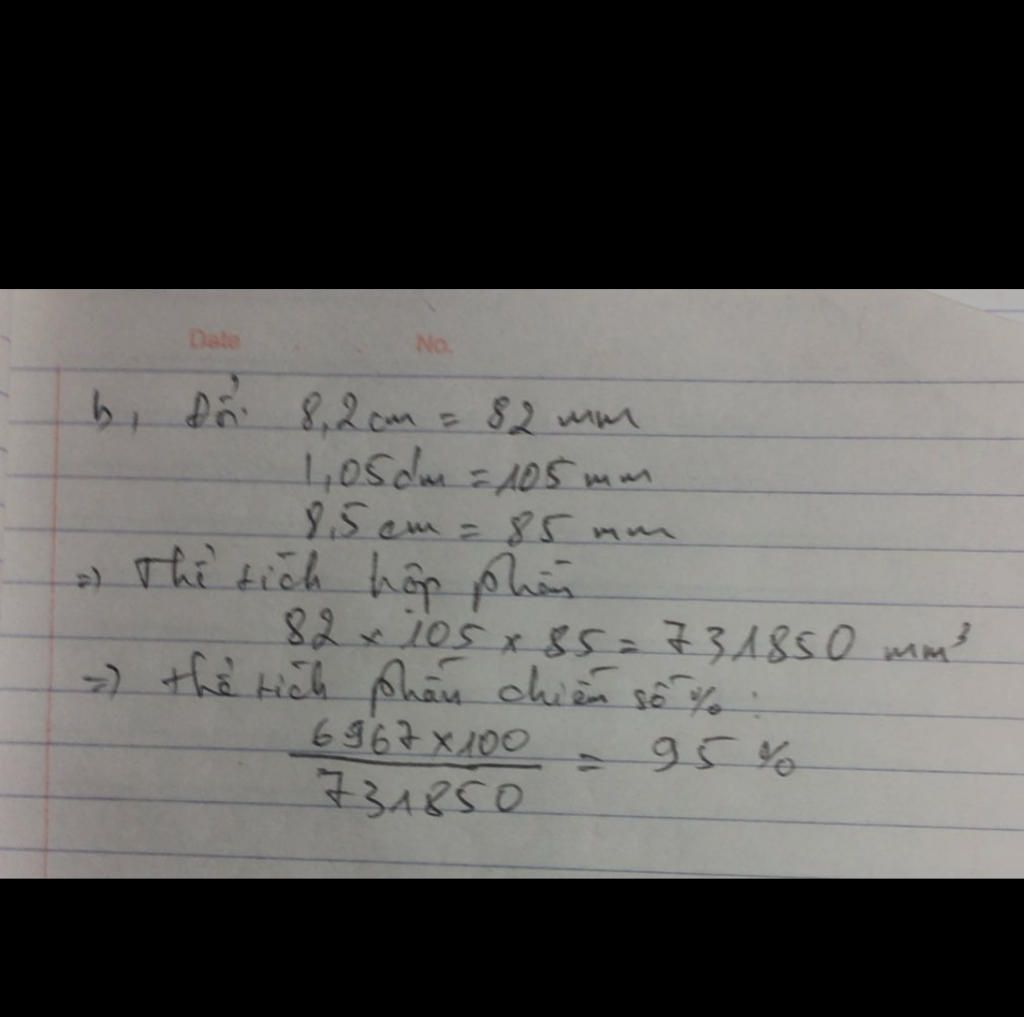 Date No.
b, Đổi: 8,2cm = 82 mm
1,05dm = 105 mm
8,5 cm = 85 mm
=) Thể tích hộp phấn
82 × 105 × 85 = 731850 mm³
=) thể tích phấn chiếm số % :
6967 × 100
731850
= 95 %